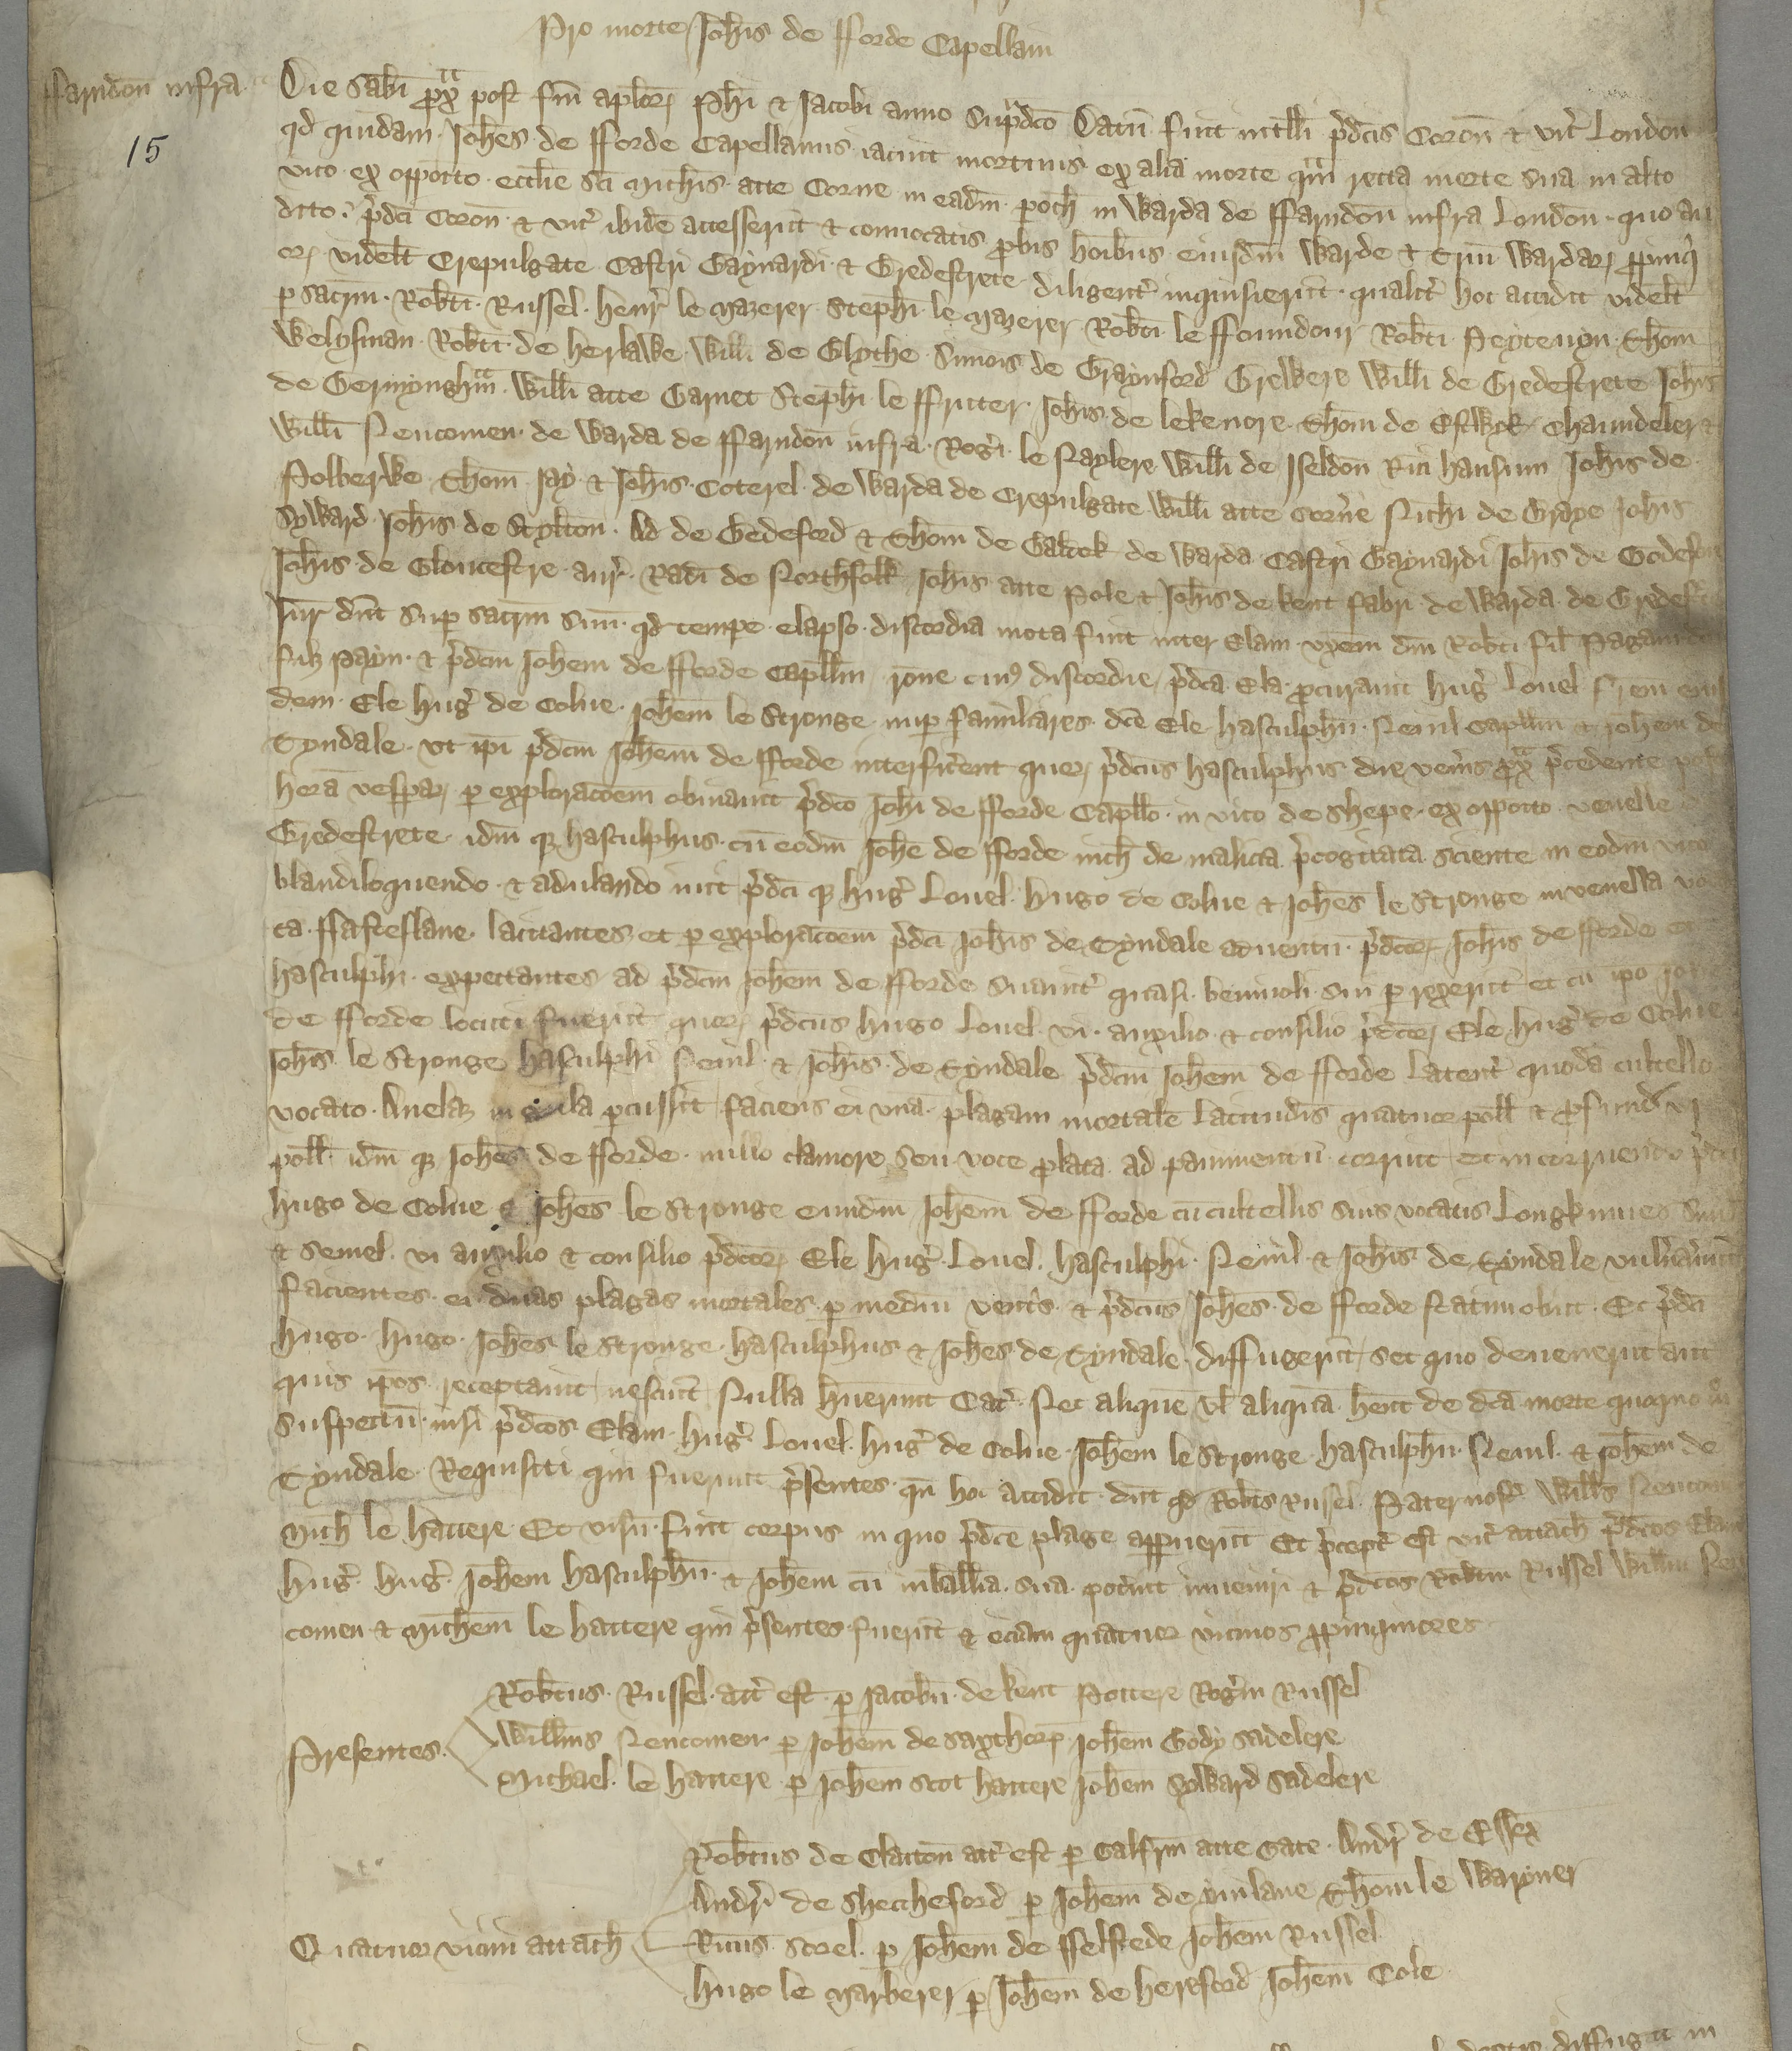 Pro morte Joħis de Fforde Capellani
Ffarndon̄ infra
15
Die Sabƀi p̄x̄ post fm̄ apl̄or̄ Phi ⁊ Jacobi anno Sup̄dc̄o Datū fuit intll̄i p̄dc̄is Coron̄ ⁊ vic̄ London̄
qd quidam Joħes de Fforde Capellanus iacuit mortuus ex alia morte qm̄ recta morte sua in alto
vico ex opposito ecctīe sc̄i Michis atte Corne in eadm̄ poch in Warda de Ffarndon̄ infra London̄ quo au
dito p̄dc̄i Coron̄ ⁊ vic̄ ibidē accesserūt ⁊ conuocatis pbis hoībus eiusdm̄ Warde ⁊ Triū Wardar̄ ppinqi
or̄ videlt Crepulgate Castri Baynardi ⁊ Bredestrete diligent̄ inquisierūt qualit̄ hoc accidit videlt
p sacrm̄ Robti Russel Henr̄ le Mazerer Stephi le Mazerer Robti le Ffoundour Robti Peyteuyn Thom̄
Welysman Robti de Herlawe Willi de Blythe Simois de Braynford Brewere Willi de Bredestrete Joħis
de Bermyngh̄m Willi atte Barnet Stephi le Ffritter Joħis de Lekenore Thom̄ de Estwyk Chaundeler ⁊
Willi Neucomen de Warda de Ffarndon̄ infra Rogi le Naylere Willi de Iseldon̄ Rici Hansum Joħis de
Polberwe Thom̄ Jay ⁊ Joħis Coterel de Warda de Crepulgate Willi atte Corn̄e Nichi de Braye Joħis
Syward Joħis de Stylton̄ Ad de Bedeford ⁊ Thom̄ de Balcok de Warda Castri Baynardi Joħis de Bodefon
Joħis de Gloucestre aur̄ Radi de Northfolk Joħis atte Pole ⁊ Joħis de Kent fabri de Warda de Bredest̄
Jur̄ dnt sup sacrm̄ suū qd tempe elapso discordia mota fuit inter Elam vxem dm̄ Robti fil Pagani
fitz Payn ⁊ p̄dcm̄ Joħem de Fforde Capllm̄ rōne cuiꝰ discordie p̄dca Ela pcurauit Hug̃ Louel frem eius
dem Ele Hug̃ de Colne Joħem le Stronge nup familiares dce Ele Hasculphū Neuil Capllm̄ ⁊ Joħem de
Tyndale vt ipi p̄dcm̄ Joħem de Fforde interfic̄ent quor̄ p̄dcus Hasculphus die ven̄is p̄x̄ p̄cedente post
horā vesp̄ar̄ p exploracoēm obuiauit p̄dco Joħi de Fforde Capllo in vico de Shepe ex opposito venelle
Bredestrete idm̄ q̨ Hasculphus cū eodm̄ Joħe de Fforde nich de malicia p̄cogitata sciente in eodm̄ vico
blandiloquendo ⁊ adulando iuit p̄dc̄i q̨ Hug̃ Louel Hugo de Colne ⁊ Joħes le Stronge in venella voca
ta Ffasteslane lacitantes et p exploracoēm p̄dc̄i Joħis de Tyndale aduentū p̄dcor̄ Joħis de Fforde et
Hasculphi expectantes ad p̄dcm̄ Joħem de Fforde suauit̄ quasi beniuoli sui prexerūt et cū ipo Joħe
de Fforde locuti fuerūt quor̄ p̄dcus Hugo Louel vi auxilio ⁊ consilio p̄dcor̄ Ele Hug̃ de Colne
Joħis le Stronge Hasculphi Neuil ⁊ Joħis de Tyndale p̄dcm̄ Joħem de Fforde latent̄ quodā cultello
vocato Anelaz in gula pcussit faciens ei vnā plagam mortalē latitudis quatuor poll̄ ⁊ pfund vi
poll̄ idm̄ q̨ Joħes de Fforde nullo clamore seu voce plata ad pauimentū corruit et in corruendo p̄dci
Hugo de Colne ⁊ Joħes le Stronge eundm̄ Joħem de Fforde cū cultellis suis vocatis Longknyues simul
⁊ semel vi auxilio ⁊ consilio p̄dcor̄ Ele Hug̃ Louel Hasculphi Neuil ⁊ Joħis de Tyndale vuln̄auerūt
facientes ei duas plagas mortales p medm̄ ventris ⁊ p̄dcus Joħes de Fforde statim obiit Et p̄dci
Hugo Hugo Joħes le Stronge Hasculphus ⁊ Joħes de Tyndale diffugerūt set quo deuenerūt aut
quis ipos receptauit nesciūt Nulla huerunt Cat̄ Nec aliquē vl̄ aliquā hent de dca morte quoquo mo
suspectū nisi p̄dcos Elam Hug̃ Louel Hug̃ de Colne Joħem le Stronge Hasculphū Neuil ⁊ Joħem de
Tyndale Requisiti qui fuerunt p̄sentes qn̄ hoc accidit dnt qd Robts Russel Paternost̄ Wills Neucom
Mich le Hattere Et visū fuit corpus in quo p̄dce plage appuerūt Et p̄cept̄ est vic̄ attach p̄dcos Elam
Hug̃ Hug̃ Joħem Hasculphū ⁊ Joħem cū in ballia sua pot̄int inueniri ⁊ p̄dcos Robtm Russel Willm Neu
comen ⁊ Michem le Hattere qui p̄sentes fuerūt ⁊ eciam quatuor vicinos ppinquiores
Presentes
Robtus Russel att̄ est p Jacobū de Kent Pottere Rog̃m Russel
Willms Neucomen p Joħem de Saxthorp Joħem Gody Sadelere
Michael le Hattere p Joħem Scot Hattere Joħem Syward Sadelere
Quatuor vicini attach
Robtus de Clatton̄ att̄ est p Galfrm̄ atte Gate Andr̄ de Essex
Andr̄ de Shecheford p Joħem de Yuilane Thom̄ le Warner
Ricus Sorel p Joħem de Ffelstede Joħem Russel
Hugo le Marberer p Joħem de Hereford Joħem Cole
diffugit in